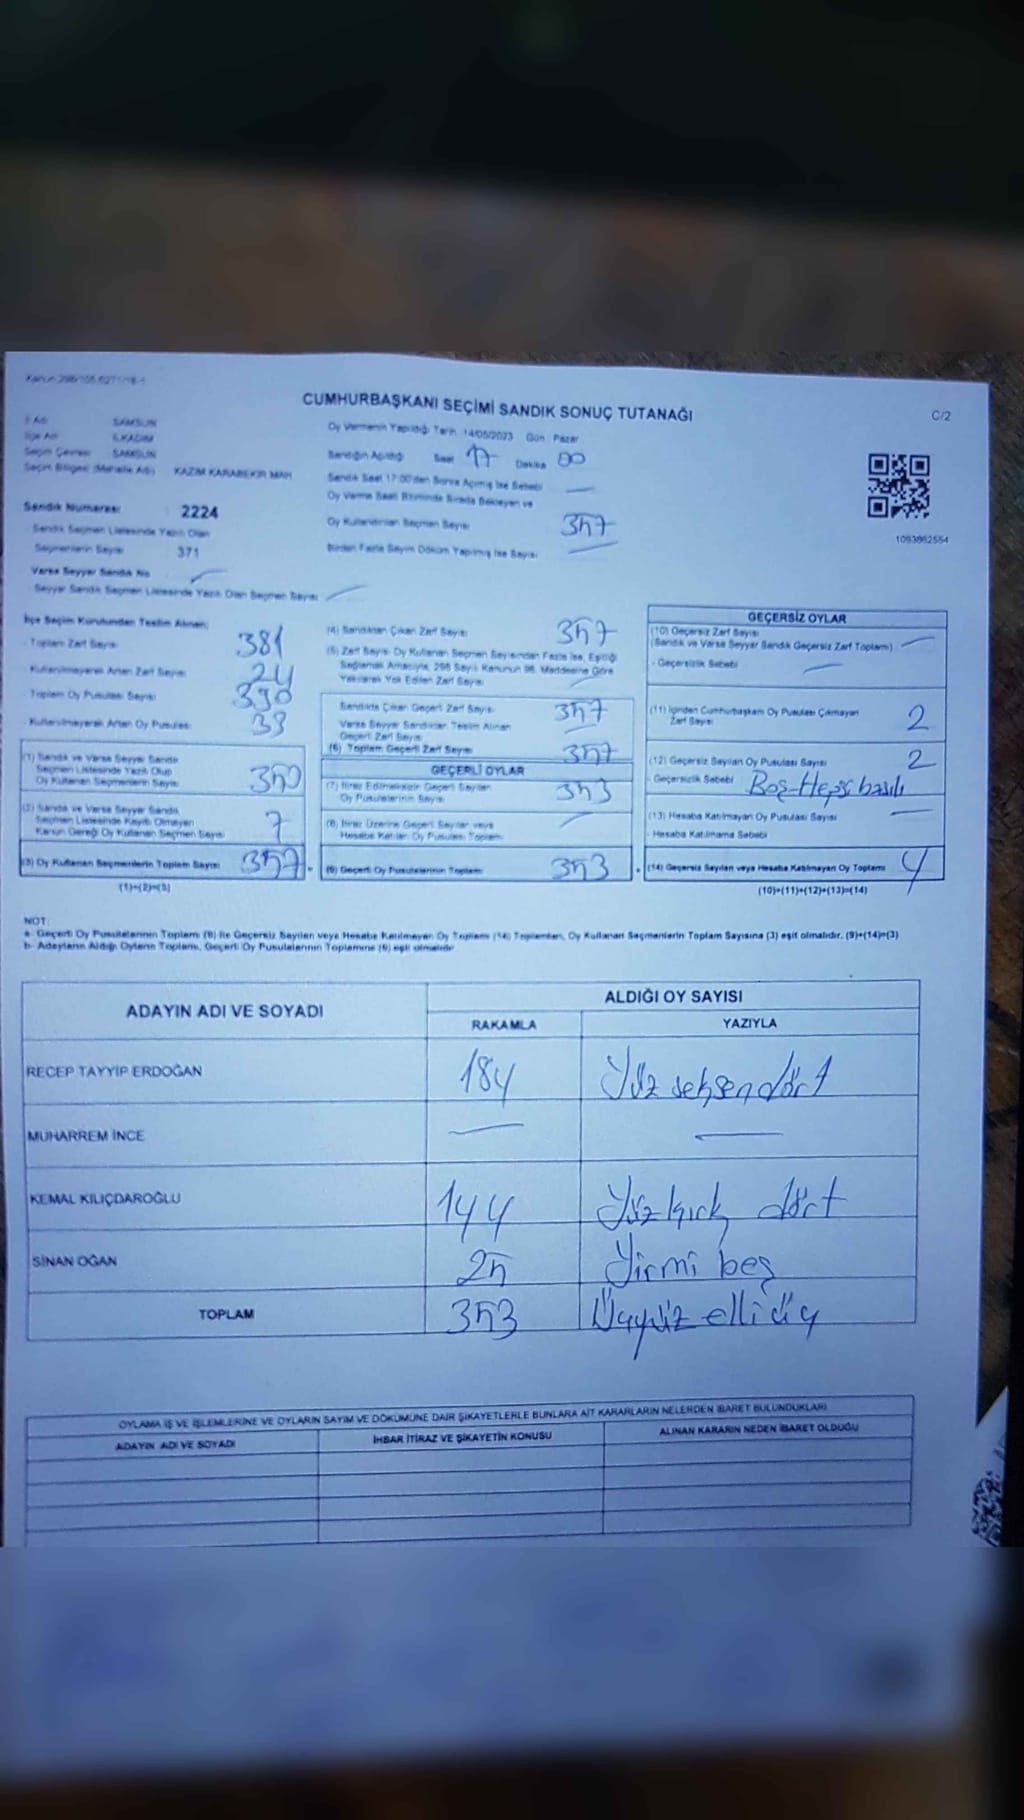 Kanun:298/105,6271/18-1
CUMHURBAŞKANI SEÇİMİ SANDIK SONUÇ TUTANAĞI
C/2
İl Adı SAMSUN
İlçe Adı İLKADIM
Seçim Çevresi SAMSUN
Seçim Bölgesi (Mahalle Adı) KAZIM KARABEKİR MAH
Sandık Numarası 2224
Sandık Seçmen Listesinde Yazılı Olan
Seçmenlerin Sayısı 371
Varsa Seyyar Sandık No
Seyyar Sandık Seçmen Listesinde Yazılı Olan Seçmen Sayısı
Oy Vermenin Yapıldığı Tarih 14/05/2023 Gün Pazar
Sandığın Açıldığı Saat 17 Dakika 00
Sandık Saat 17:00'den Sonra Açılmış İse Sebebi
Oy Verme Saati Bitiminde Sırada Bekleyen ve
Oy Kullandırılan Seçmen Sayısı 357
Birden Fazla Sayım Döküm Yapılmış İse Sayısı
1093862554
İlçe Seçim Kurulundan Teslim Alınan;
- Toplam Zarf Sayısı 381
- Kullanılmayarak Artan Zarf Sayısı 24
- Toplam Oy Pusulası Sayısı 390
- Kullanılmayarak Artan Oy Pusulası 33
(1) Sandık ve Varsa Seyyar Sandık
Seçmen Listesinde Yazılı Olup
Oy Kullanan Seçmenlerin Sayısı 350
(2) Sandık ve Varsa Seyyar Sandık
Seçmen Listesinde Kayıtlı Olmayan
Kanun Gereği Oy Kullanan Seçmen Sayısı 7
(3) Oy Kullanan Seçmenlerin Toplam Sayısı 357
(1)+(2)=(3)
(4) Sandıktan Çıkan Zarf Sayısı 357
(5) Zarf Sayısı Oy Kullanan Seçmen Sayısından Fazla İse, Eşitliği
Sağlamak Amacıyla, 298 Sayılı Kanunun 98. Maddesine Göre
Yakılarak Yok Edilen Zarf Sayısı
Sandıkta Çıkan Geçerli Zarf Sayısı 357
Varsa Seyyar Sandıktan Teslim Alınan
Geçerli Zarf Sayısı
(6) Toplam Geçerli Zarf Sayısı 357
GEÇERLİ OYLAR
(7) İtiraz Edilmeksizin Geçerli Sayılan
Oy Pusulalarının Sayısı 353
(8) İtiraz Üzerine Geçerli Sayılan veya
Hesaba Katılan Oy Pusulası Toplamı
(9) Geçerli Oy Pusulalarının Toplamı 353
GEÇERSİZ OYLAR
(10) Geçersiz Zarf Sayısı
(Sandık ve Varsa Seyyar Sandık Geçersiz Zarf Toplamı)
- Geçersizlik Sebebi
(11) İçinden Cumhurbaşkanı Oy Pusulası Çıkmayan
Zarf Sayısı 2
(12) Geçersiz Sayılan Oy Pusulası Sayısı 2
- Geçersizlik Sebebi Boş-Hepsi basılı
(13) Hesaba Katılmayan Oy Pusulası Sayısı
- Hesaba Katılmama Sebebi
(14) Geçersiz Sayılan veya Hesaba Katılmayan Oy Toplamı 4
(10)+(11)+(12)+(13)=(14)
NOT:
a- Geçerli Oy Pusulalarının Toplamı (9) ile Geçersiz Sayılan veya Hesaba Katılmayan Oy Toplamı (14) Toplamları, Oy Kullanan Seçmenlerin Toplam Sayısına (3) eşit olmalıdır. (9)+(14)=(3)
b- Adayların Aldığı Oyların Toplamı, Geçerli Oy Pusulalarının Toplamına (9) eşit olmalıdır
ADAYIN ADI VE SOYADI ALDIĞI OY SAYISI
RAKAMLA YAZIYLA
RECEP TAYYİP ERDOĞAN 184 Yüz seksen dört
MUHARREM İNCE
KEMAL KILIÇDAROĞLU 144 Yüz kırk dört
SİNAN OĞAN 25 Yirmi beş
TOPLAM 353 Üçyüz elli üç
OYLAMA İŞ VE İŞLEMLERİNE VE OYLARIN SAYIM VE DÖKÜMÜNE DAİR ŞİKAYETLERLE BUNLARA AİT KARARLARIN NELERDEN İBARET BULUNDUKLARI
ADAYIN ADI VE SOYADI İHBAR İTİRAZ VE ŞİKAYETİN KONUSU ALINAN KARARIN NEDEN İBARET OLDUĞU